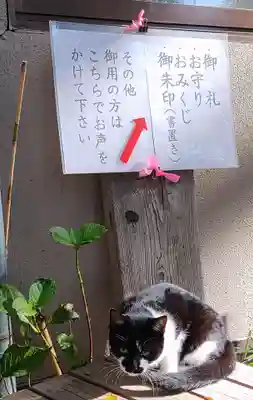 御札
お守り
おみくじ
御朱印(書置き)
その他
御用の方は
こちらでお声を
かけて下さい